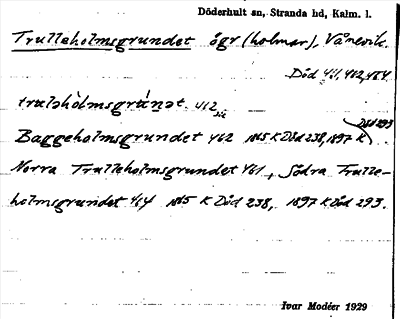 Döderhult sn, Stranda hd, Kalm. l.
Trulleholmsgrundet ögr (holmar), Vånevik.
Död 461, 462, 464.
truləhòlmsgrúnət 462
Död 293
Baggeholmsgrundet 462 1865 K Död 238, 1897 K
Norra Trulleholmsgrundet 461, Södra Trulle-
holmsgrundet 464 1865 K Död 238, 1897 K Död 293.
Ivar Modéer 1929